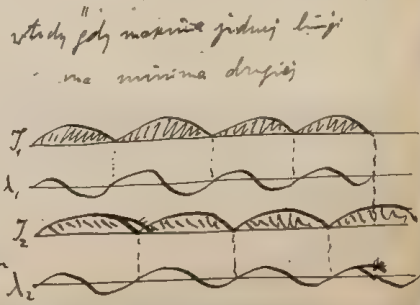 wtedy gdy maxima jednej linji
na minima drugiej
J₁
λ₁
J₂
λ₂